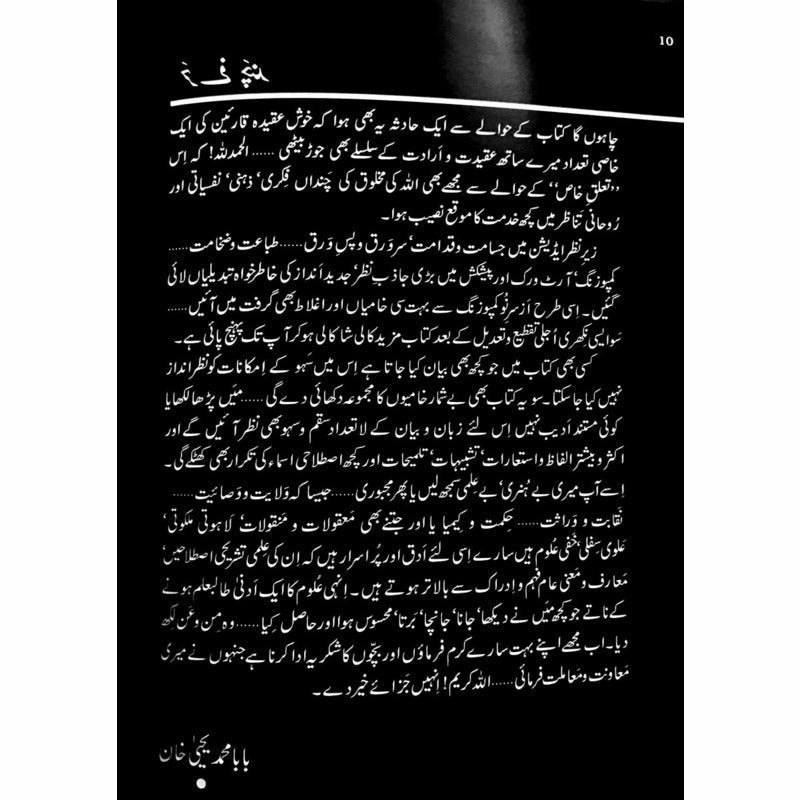 10
چاہوں گا کتاب کے حوالے سے ایک حادثہ یہ بھی ہوا کہ خوش عقیدہ قارئین کی ایک
خاصی تعداد میرے ساتھ عقیدت و اَرادت کے سلسلے بھی جوڑ بیٹھی ...... الحمدللہ! کہ اِس
’’تعلقِ خاص‘‘ کے حوالے سے مجھے بھی اللہ کی مخلوق کی چَنداں فِکری‘ ذہنی‘ نفسیاتی اور
رُوحانی تَناظر میں کچھ خدمت کا موقع نصیب ہوا۔
زیرِ نظر ایڈیشن میں جسامت و قدامت‘ سرورَق و پسِ وَرق ...... طباعت و ضخامت ......
کمپوزنگ‘ آرٹ ورک اور پیشکش میں بڑی جاذبِ نظر‘ جدید اَنداز کی خاطر خواہ تبدیلیاں لائی
گئیں۔ اِسی طرح اَز سرِنَو کمپوزنگ سے بہت سی خامیاں اور اغلاط بھی گرفت میں آئیں ......
سَو ایسی نِکھری اُجلی تقطیع و تعدیل کے بعد کتاب مزید کالی شاکالی ہو کر آپ تک پہنچ پائی ہے۔
کسی بھی کتاب میں جو کچھ بھی بیان کیا جاتا ہے اِس میں سَہو کے اِمکانات کو نظرانداز
نہیں کیا جا سکتا۔ سو یہ کتاب بھی بے شمار خامیوں کا مجموعہ دکھائی دے گی ...... مَیں پڑھا لکھا یا
کوئی مستند اَدیب نہیں اِس لئے زبان و بیان کے لاتعداد سقم و سہو بھی نظر آئیں گے اور
اکثر و بیشتر الفاظ و استعارات‘ تشبیہات‘ تلمیحات اور کچھ اصطلاحی اسماء کی تکرار بھی کھٹکے گی۔
اِسے آپ میری بے ہُنری‘ بے عِلمی سمجھ لیں یا پھر مجبوری ...... جیسا کہ وَلایت و وَصائیت ......
نَقابت و وَراثت ...... حِکمت و کِیمیا یا اور جتنے بھی مَعقولات و مَنقولات‘ لَاہوتی مَلکوتی‘
عَلوی سِفلی‘ خَفی عُلوم ہیں سارے اِسی لئے اَدق اور پُراسرار ہیں کہ اِن کی عِلمی تشریحی اصطلاحیں‘
مَعارف و مَعنی عام فہم و اِدراک سے بالاتر ہوتے ہیں۔ اِنہی عُلوم کا ایک اَدنیٰ طالبعلم ہونے
کے ناتے جو کچھ مَیں نے دیکھا‘ جانا‘ جانچا‘ بَرتا‘ محسوس ہوا اور حاصل کِیا ...... وہ مِن و عَن لکھ
دیا۔ اب مجھے اپنے بہت سارے کرم فرماؤں اور بچّوں کا شکریہ ادا کرنا ہے جنہوں نے میری
مَعاونت و مَعاملت فرمائی ...... اللہ کریم! اِنہیں جَزائے خیر دے۔
بابا محمد یحییٰ خان